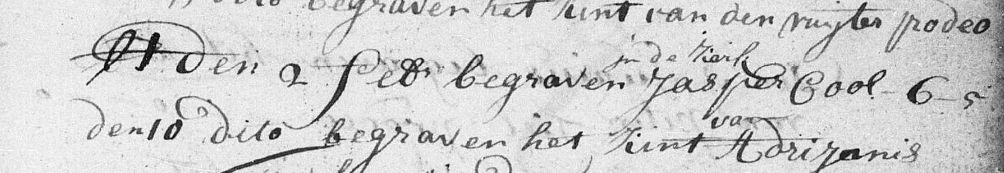 dito begraven het kint van den ruyter prodeo
den 2 feb begraven in de kerk Jasper Cool - 6 - 5
den 10 dito begraven het kint van Adrijanis